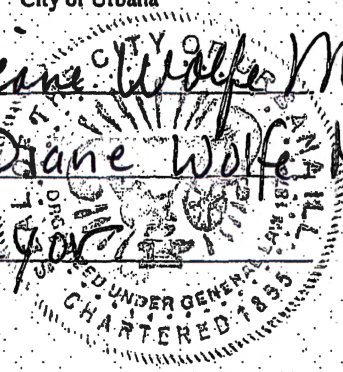 City of Urbana
Diane Wolfe M
Diane Wolfe
yor
THE CITY OF URBANA ILL
ORGANIZED UNDER GENERAL LAW 1871
CHARTERED 1855